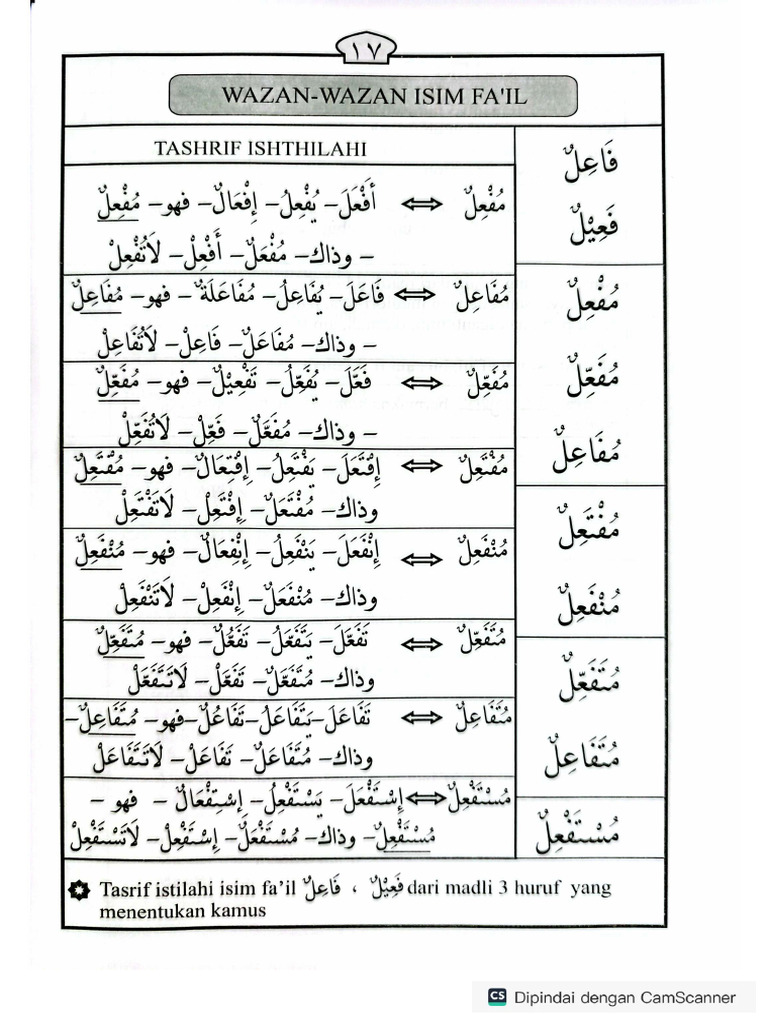 ١٧
WAZAN-WAZAN ISIM FA'IL
TASHRIF ISHTHILAHI
فَاعِلٌ
فَعِيْلٌ
مُفْعِلٌ
مُفَعِّلٌ
مُفَاعِلٌ
مُفْتَعِلٌ
مُنْفَعِلٌ
مُتَفَعِّلٌ
مُتَفَاعِلٌ
مُسْتَفْعِلٌ
مُفْعِلٌ ⇔ أَفْعَلَ – يُفْعِلُ – إِفْعَالٌ – فهو – مُفْعِلٌ
– وذاك – مُفْعَلٌ – أَفْعِلْ – لَاتُفْعِلْ
مُفَاعِلٌ ⇔ فَاعَلَ – يُفَاعِلُ – مُفَاعَلَةٌ – فهو – مُفَاعِلٌ
– وذاك – مُفَاعَلٌ – فَاعِلْ – لَاتُفَاعِلْ
مُفَعِّلٌ ⇔ فَعَّلَ – يُفَعِّلُ – تَفْعِيْلٌ – فهو – مُفَعِّلٌ
– وذاك – مُفَعَّلٌ – فَعِّلْ – لَاتُفَعِّلْ
مُفْتَعِلٌ ⇔ إِفْتَعَلَ – يَفْتَعِلُ – إِفْتِعَالٌ – فهو – مُفْتَعِلٌ
وذاك – مُفْتَعَلٌ – إِفْتَعِلْ – لَاتَفْتَعِلْ
مُنْفَعِلٌ ⇔ إِنْفَعَلَ – يَنْفَعِلُ – إِنْفِعَالٌ – فهو – مُنْفَعِلٌ
وذاك – مُنْفَعَلٌ – إِنْفَعِلْ – لَاتَنْفَعِلْ
مُتَفَعِّلٌ ⇔ تَفَعَّلَ – يَتَفَعَّلُ – تَفَعُّلٌ – فهو – مُتَفَعِّلٌ
وذاك – مُتَفَعَّلٌ – تَفَعَّلْ – لَاتَتَفَعَّلْ
مُتَفَاعِلٌ ⇔ تَفَاعَلَ – يَتَفَاعَلُ – تَفَاعُلٌ – فهو – مُتَفَاعِلٌ –
وذاك – مُتَفَاعَلٌ – تَفَاعَلْ – لَاتَتَفَاعَلْ
مُسْتَفْعِلٌ ⇔ إِسْتَفْعَلَ – يَسْتَفْعِلُ – إِسْتِفْعَالٌ – فهو –
مُسْتَفْعِلٌ – وذاك – مُسْتَفْعَلٌ – إِسْتَفْعِلْ – لَاتَسْتَفْعِلْ
Tasrif istilahi isim fa'il فَاعِلٌ ، فَعِيْلٌ dari madli 3 huruf yang
menentukan kamus
CS Dipindai dengan CamScanner